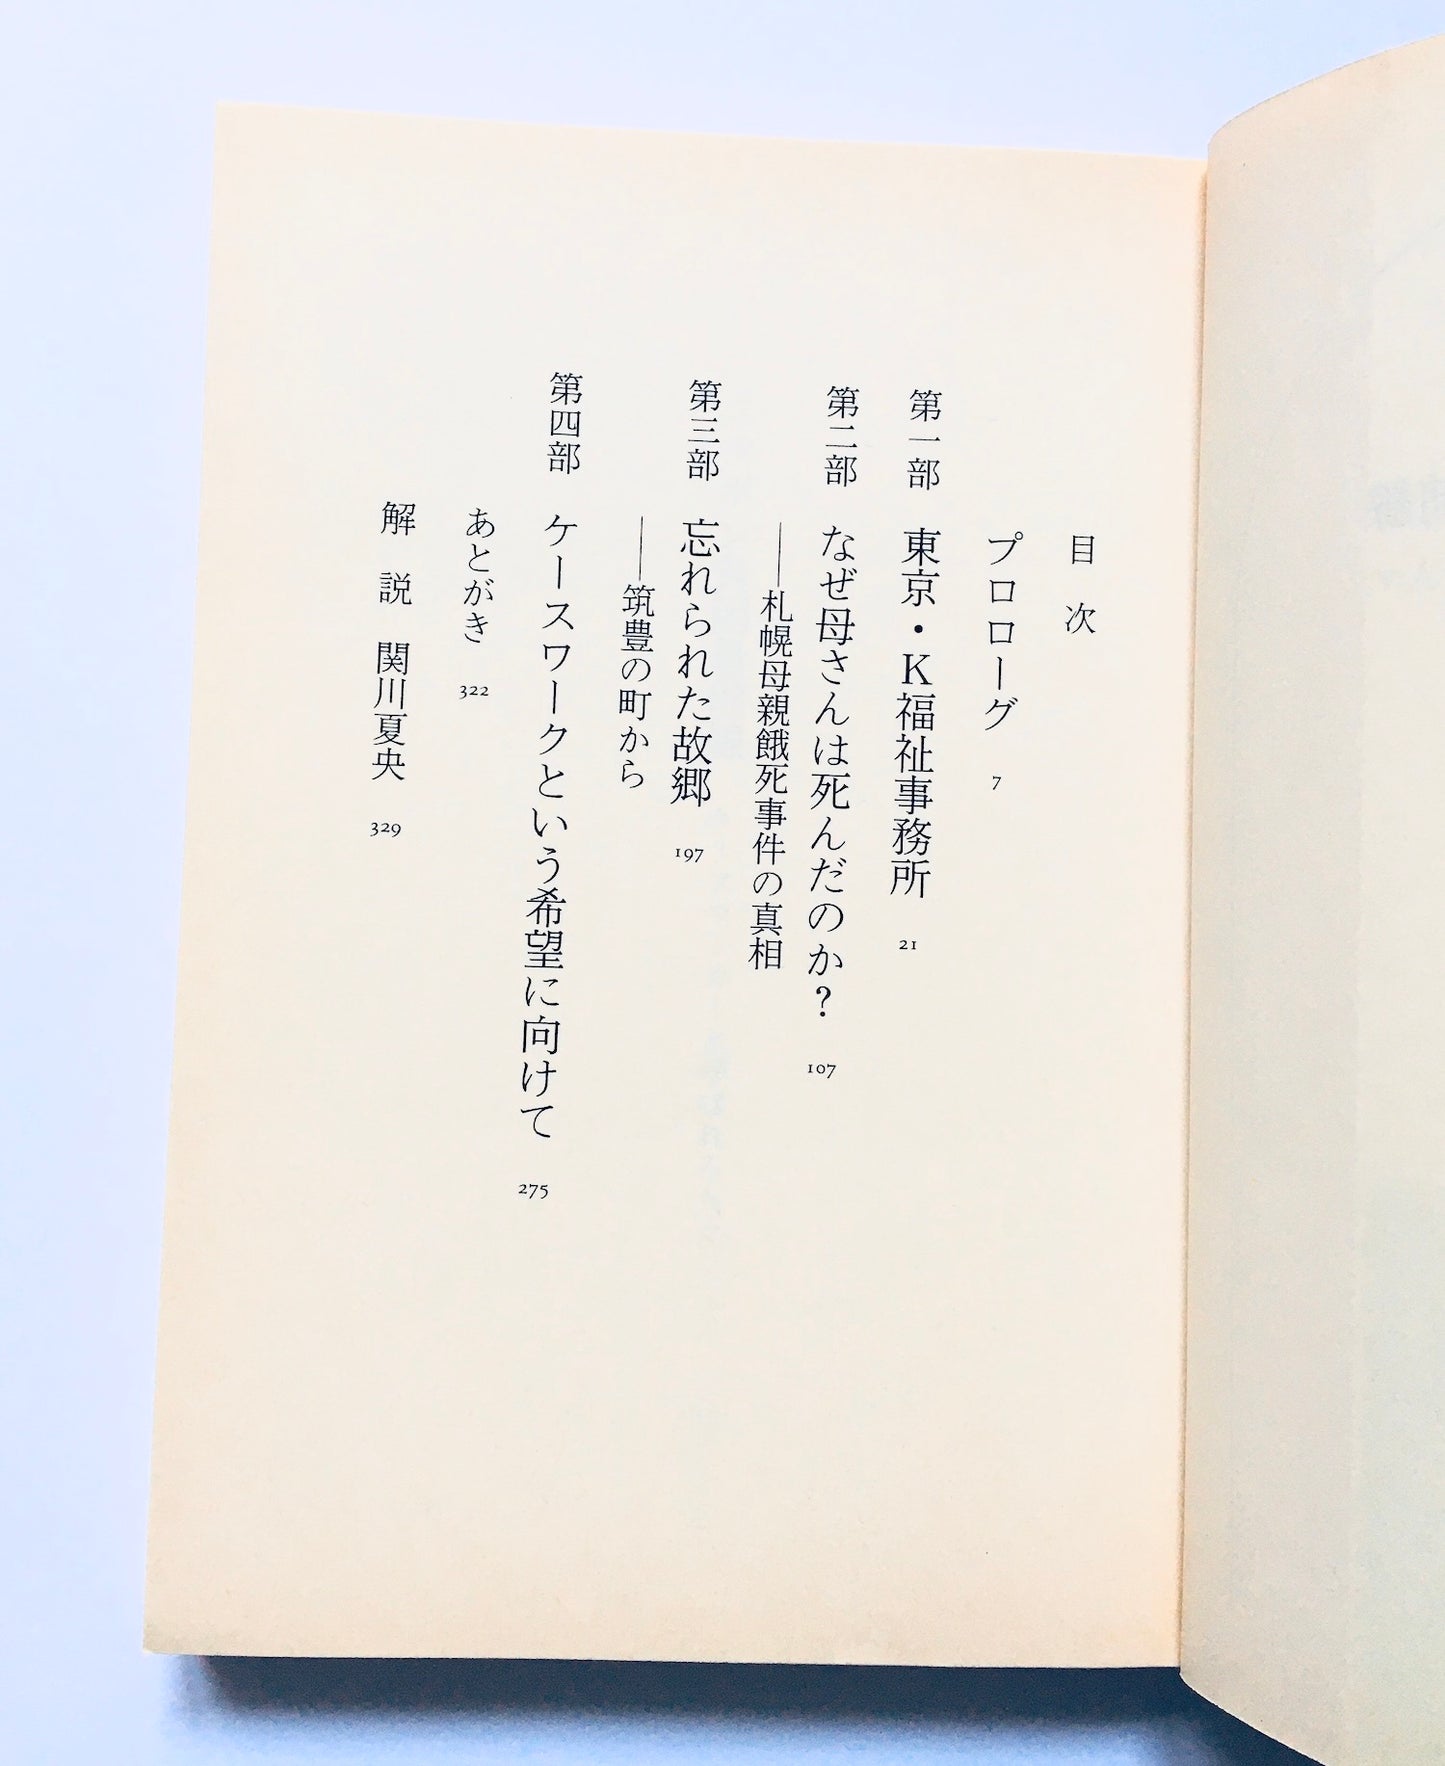 目次
プロローグ 7
第一部 東京・K福祉事務所 21
第二部 なぜ母さんは死んだのか? 107
――札幌母親餓死事件の真相
第三部 忘れられた故郷 197
――筑豊の町から
第四部 ケースワークという希望に向けて 275
あとがき 322
解説 関川夏央 329